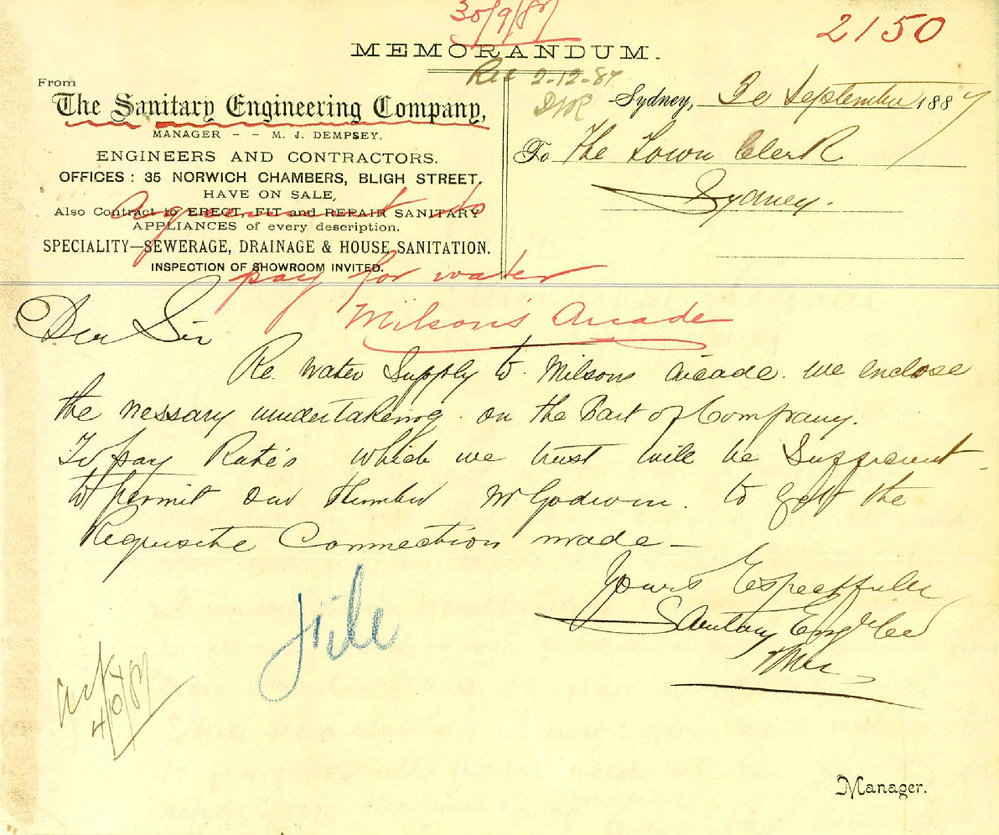 30/9/87
2150
MEMORANDUM.
Rec 2-12-87
From
The Sanitary Engineering Company,
MANAGER - - M. J. DEMPSEY.
ENGINEERS AND CONTRACTORS.
OFFICES: 35 NORWICH CHAMBERS, BLIGH STREET,
HAVE ON SALE,
Also Contract to ERECT, FIT and REPAIR SANITARY
APPLIANCES of every description.
SPECIALITY—SEWERAGE, DRAINAGE & HOUSE SANITATION.
INSPECTION OF SHOWROOM INVITED.
Sydney, 30 September 1887
To The Town Clerk
Sydney.
Agreement to
pay for water
Milson's Arcade
Dear Sir
Re. Water Supply to Milsons Arcade. we enclose
the nessary undertakeing. on the Part of Company.
To pay Rate's which we trust will be Sufficient
to permit our Plumber Mr Godwin. to get the
Requisite Connection made —
Yours Respectfully
Sanitary Eng Co
file
Manager.